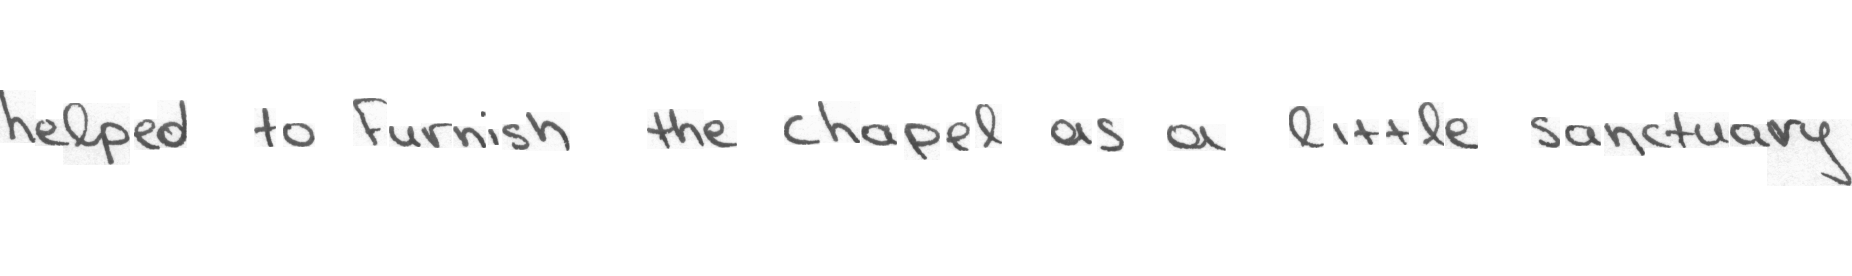 helped to Furnish the chapel as a little sanctuary